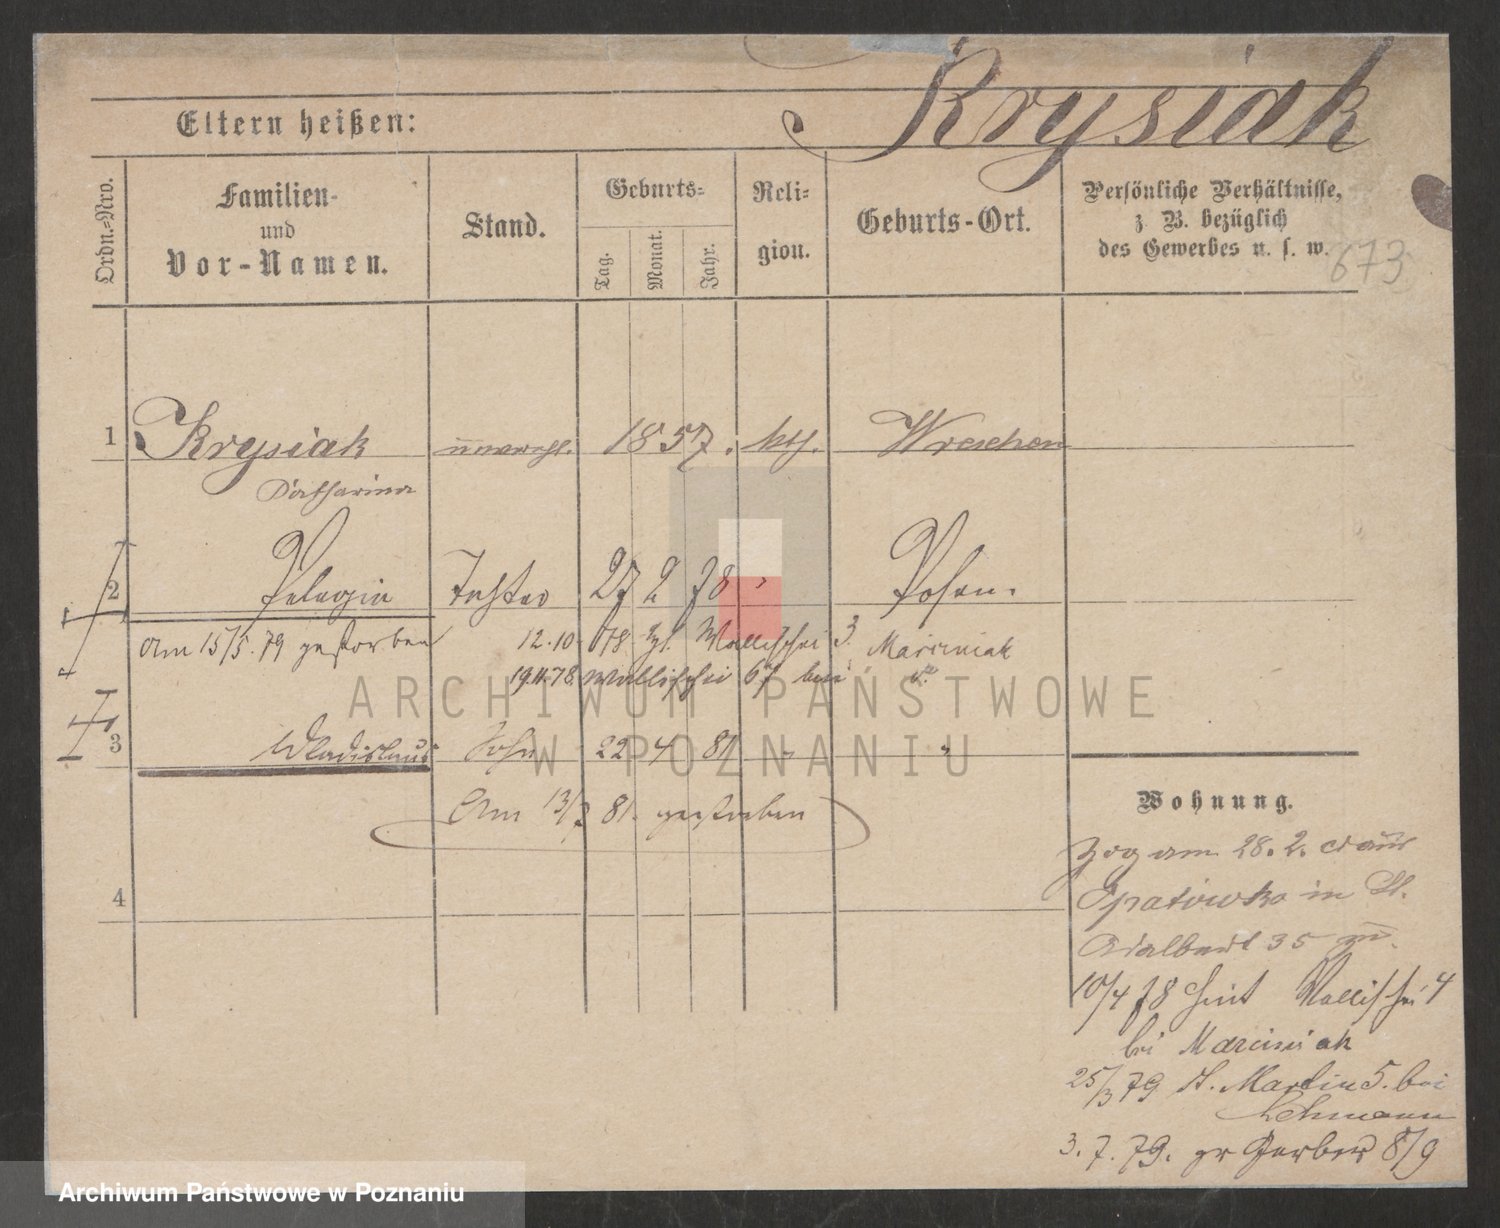 Krysiak
Eltern heißen:
Ordn.=Nro.
Familien-
und
Vor-Namen.
Stand.
Geburts=
Tag.
Monat.
Jahr.
Reli=
gion.
Geburts-Ort.
Persönliche Verhältnisse,
z. B. bezüglich
des Gewerbes u. s. w.
673
1 Krysiak unverehl. 1857. kth. Wreschen
Catharina
2 Pelagia Tochter 27 2 78 " Posen.
am 15/5. 79 gestorben 12.10. 78. Wallischei 3. Marciniak
19.11.78. Wallischei 67 bei
3 Wladislaus Sohn 22 4 81 " "
Am 13/7 81. gestorben
4
Wohnung.
Zog am 28. 2. aus
Opatowko in St.
Adalbert 35 zu.
10/4 78 Wallischei 4
bei Marciniak
25/3 79 St. Martin 5. bei
Lehmann
3. 7. 79. gr Gerber 8/9
ARCHIWUM PAŃSTWOWE
W POZNANIU
Archiwum Państwowe w Poznaniu